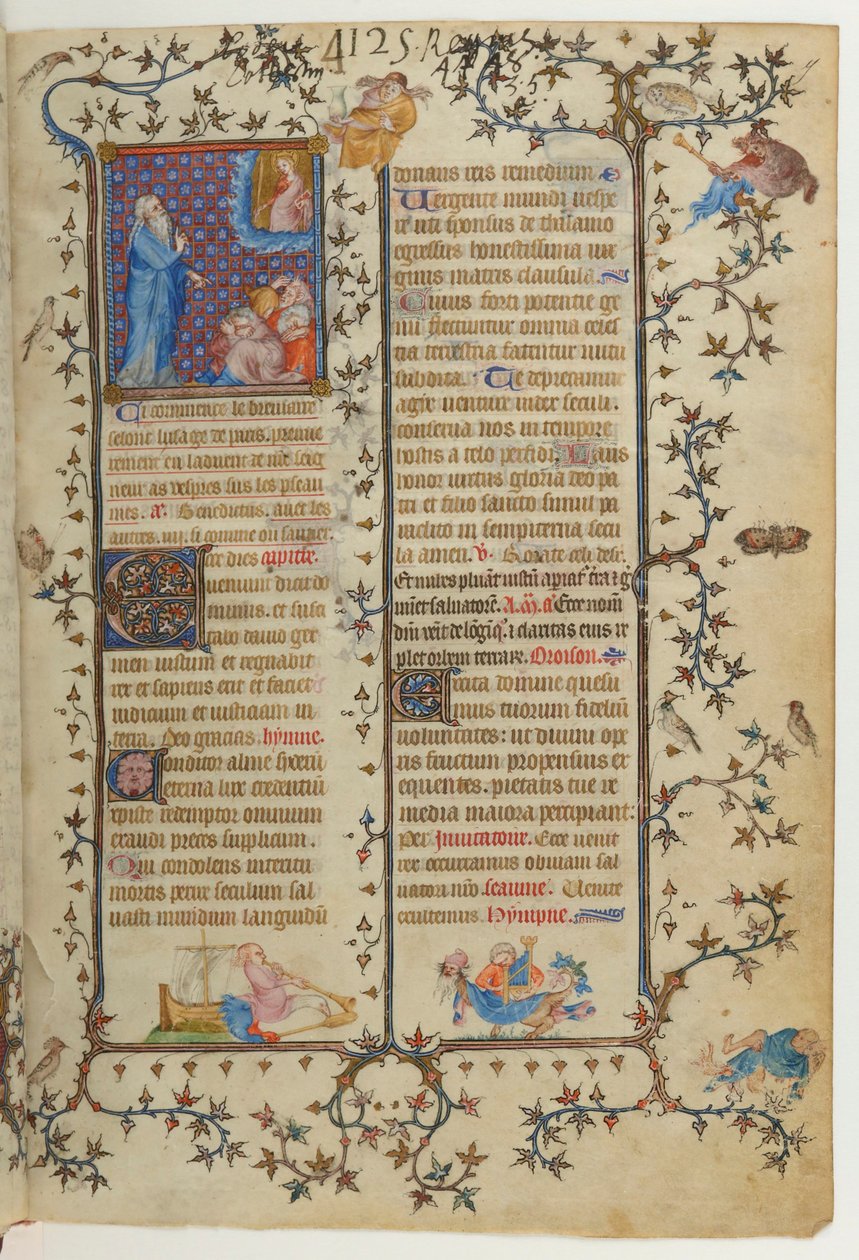 4125. Regius.
4148.
5.5.
Ci commence le breviaire
selonc lusage de paris. premie
rement en ladvent de nre seig
neur as vespres sus les pseau
mes. a. Benedictus. avec les
autres. iiij. si comme ou sautier.
Ecce dies capitle.
veniunt dicit do
minus. et susci
tabo david ger
men iustum et regnabit
rex et sapiens erit et faciet
iudicium et iusticiam in
terra. Deo gracias. hymne.
Conditor alme syderum
eterna lux credentium
xpiste redemptor omnium
exaudi preces supplicum.
Qui condolens interitu
mortis perire seculum sal
vasti mundum languidum
donans reis remedium
Vergente mundi vespe
re uti sponsus de thalamo
egressus honestissima vir
ginis matris clausula
Cuius forti potentie ge
nu flectuntur omnia celes
tia terrestria fatentur nutu
subdita. Te deprecamur
agie venture iudex seculi.
conserva nos in tempore
hostis a telo perfidi. Laus
honor virtus gloria deo pa
tri et filio sancto simul pa
raclito in sempiterna secu
la amen. V. Rorate celi desr.
Et nubes pluant iustum apiat. tra et g
minet salvatore. A. M. a Ecce nom
dni venit de longiq. et claritas eius re
plet orbem terrarum. Oroison.
Excita domine quesu
mus tuorum fidelium
voluntates: ut divini ope
ris fructum propensius ex
equentes. pietatis tue re
media maiora percipiant:
Per Invitatoire. Ecce venit
rex occurramus obviam sal
vatori nro. seaume. Venite
exultemus. Hympne.